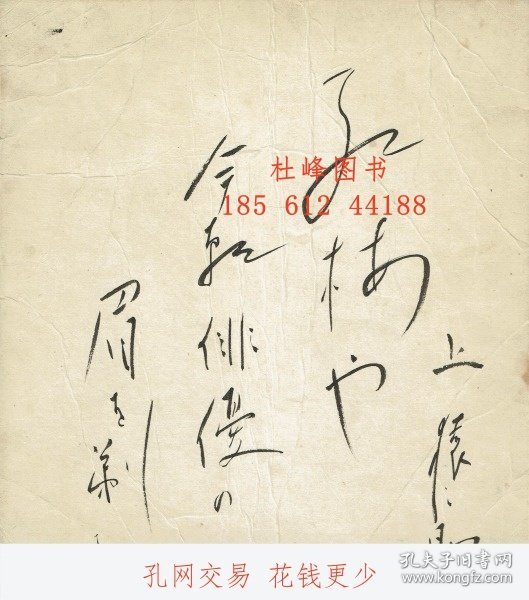 上猿
紅梅や
今 俳優の
眉を剃
杜峰图书
185 612 44188
孔网交易 花钱更少
孔夫子旧书网
www.kongfz.com